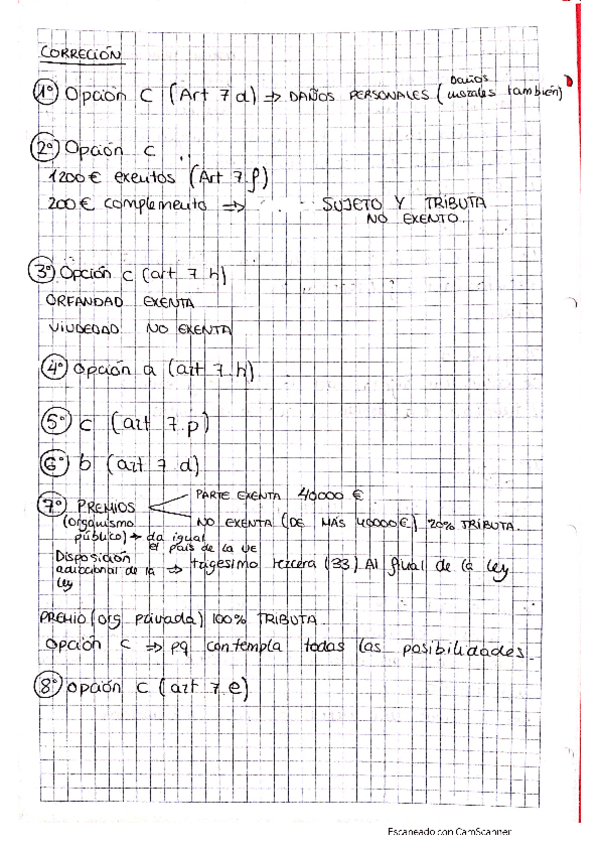 CORRECIÓN
1º Opción C (Art 7 d) ⇒ DAÑOS PERSONALES (Daños morales también)
2º Opción C
1200 € exentos (Art 7. f)
200 € complemento ⇒ SUJETO Y TRIBUTA
NO EXENTO.
3º Opción C (art 7 h)
ORFANDAD EXENTA
VIUDEDAD NO EXENTA
4º Opción a (art 7.h)
5º C (art 7.p)
6º b (art 7 d)
7º PREMIOS PARTE EXENTA 40000 €
NO EXENTA (DE MÁS 40000 €) 20% TRIBUTA.
(organismo público) → da igual el país de la UE
Disposición adiccional de la ley ⇒ trigesimo tercera (33) Al final de la ley
PREMIO (org privada) 100% TRIBUTA.
Opción C ⇒ pq contempla todas las posibilidades.
8º Opción C (art 7.e)
Escaneado con CamScanner